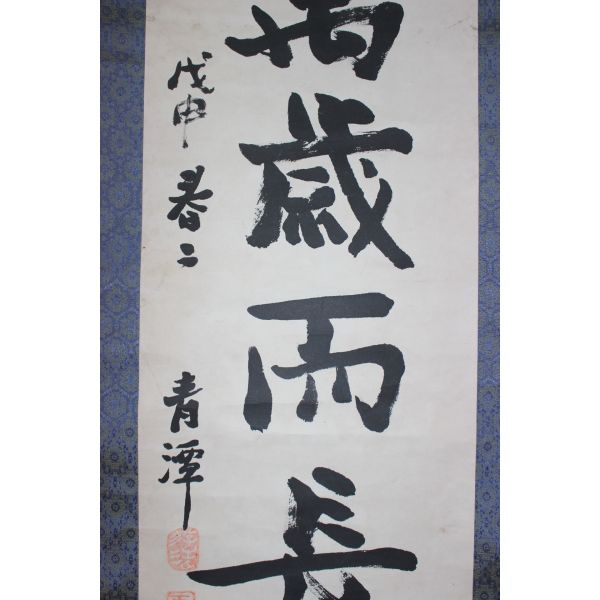 歳而長
戊申 春二
青潭